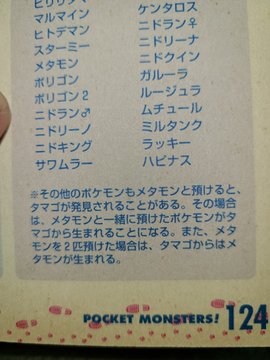 ビリリダマ
マルマイン
ヒトデマン
スターミー
メタモン
ポリゴン
ポリゴン2
ニドラン♂
ニドリーノ
ニドキング
サワムラー
ケンタロス
ニドラン♀
ニドリーナ
ニドクイン
ガルーラ
ルージュラ
ムチュール
ミルタンク
ラッキー
ハピナス
※その他のポケモンもメタモンと預けると、
タマゴが発見されることがある。その場合
は、メタモンと一緒に預けたポケモンがタ
マゴから生まれることになる。また、メタ
モンを2匹預けた場合は、タマゴからはメ
タモンが生まれる。
POCKET MONSTERS! 124